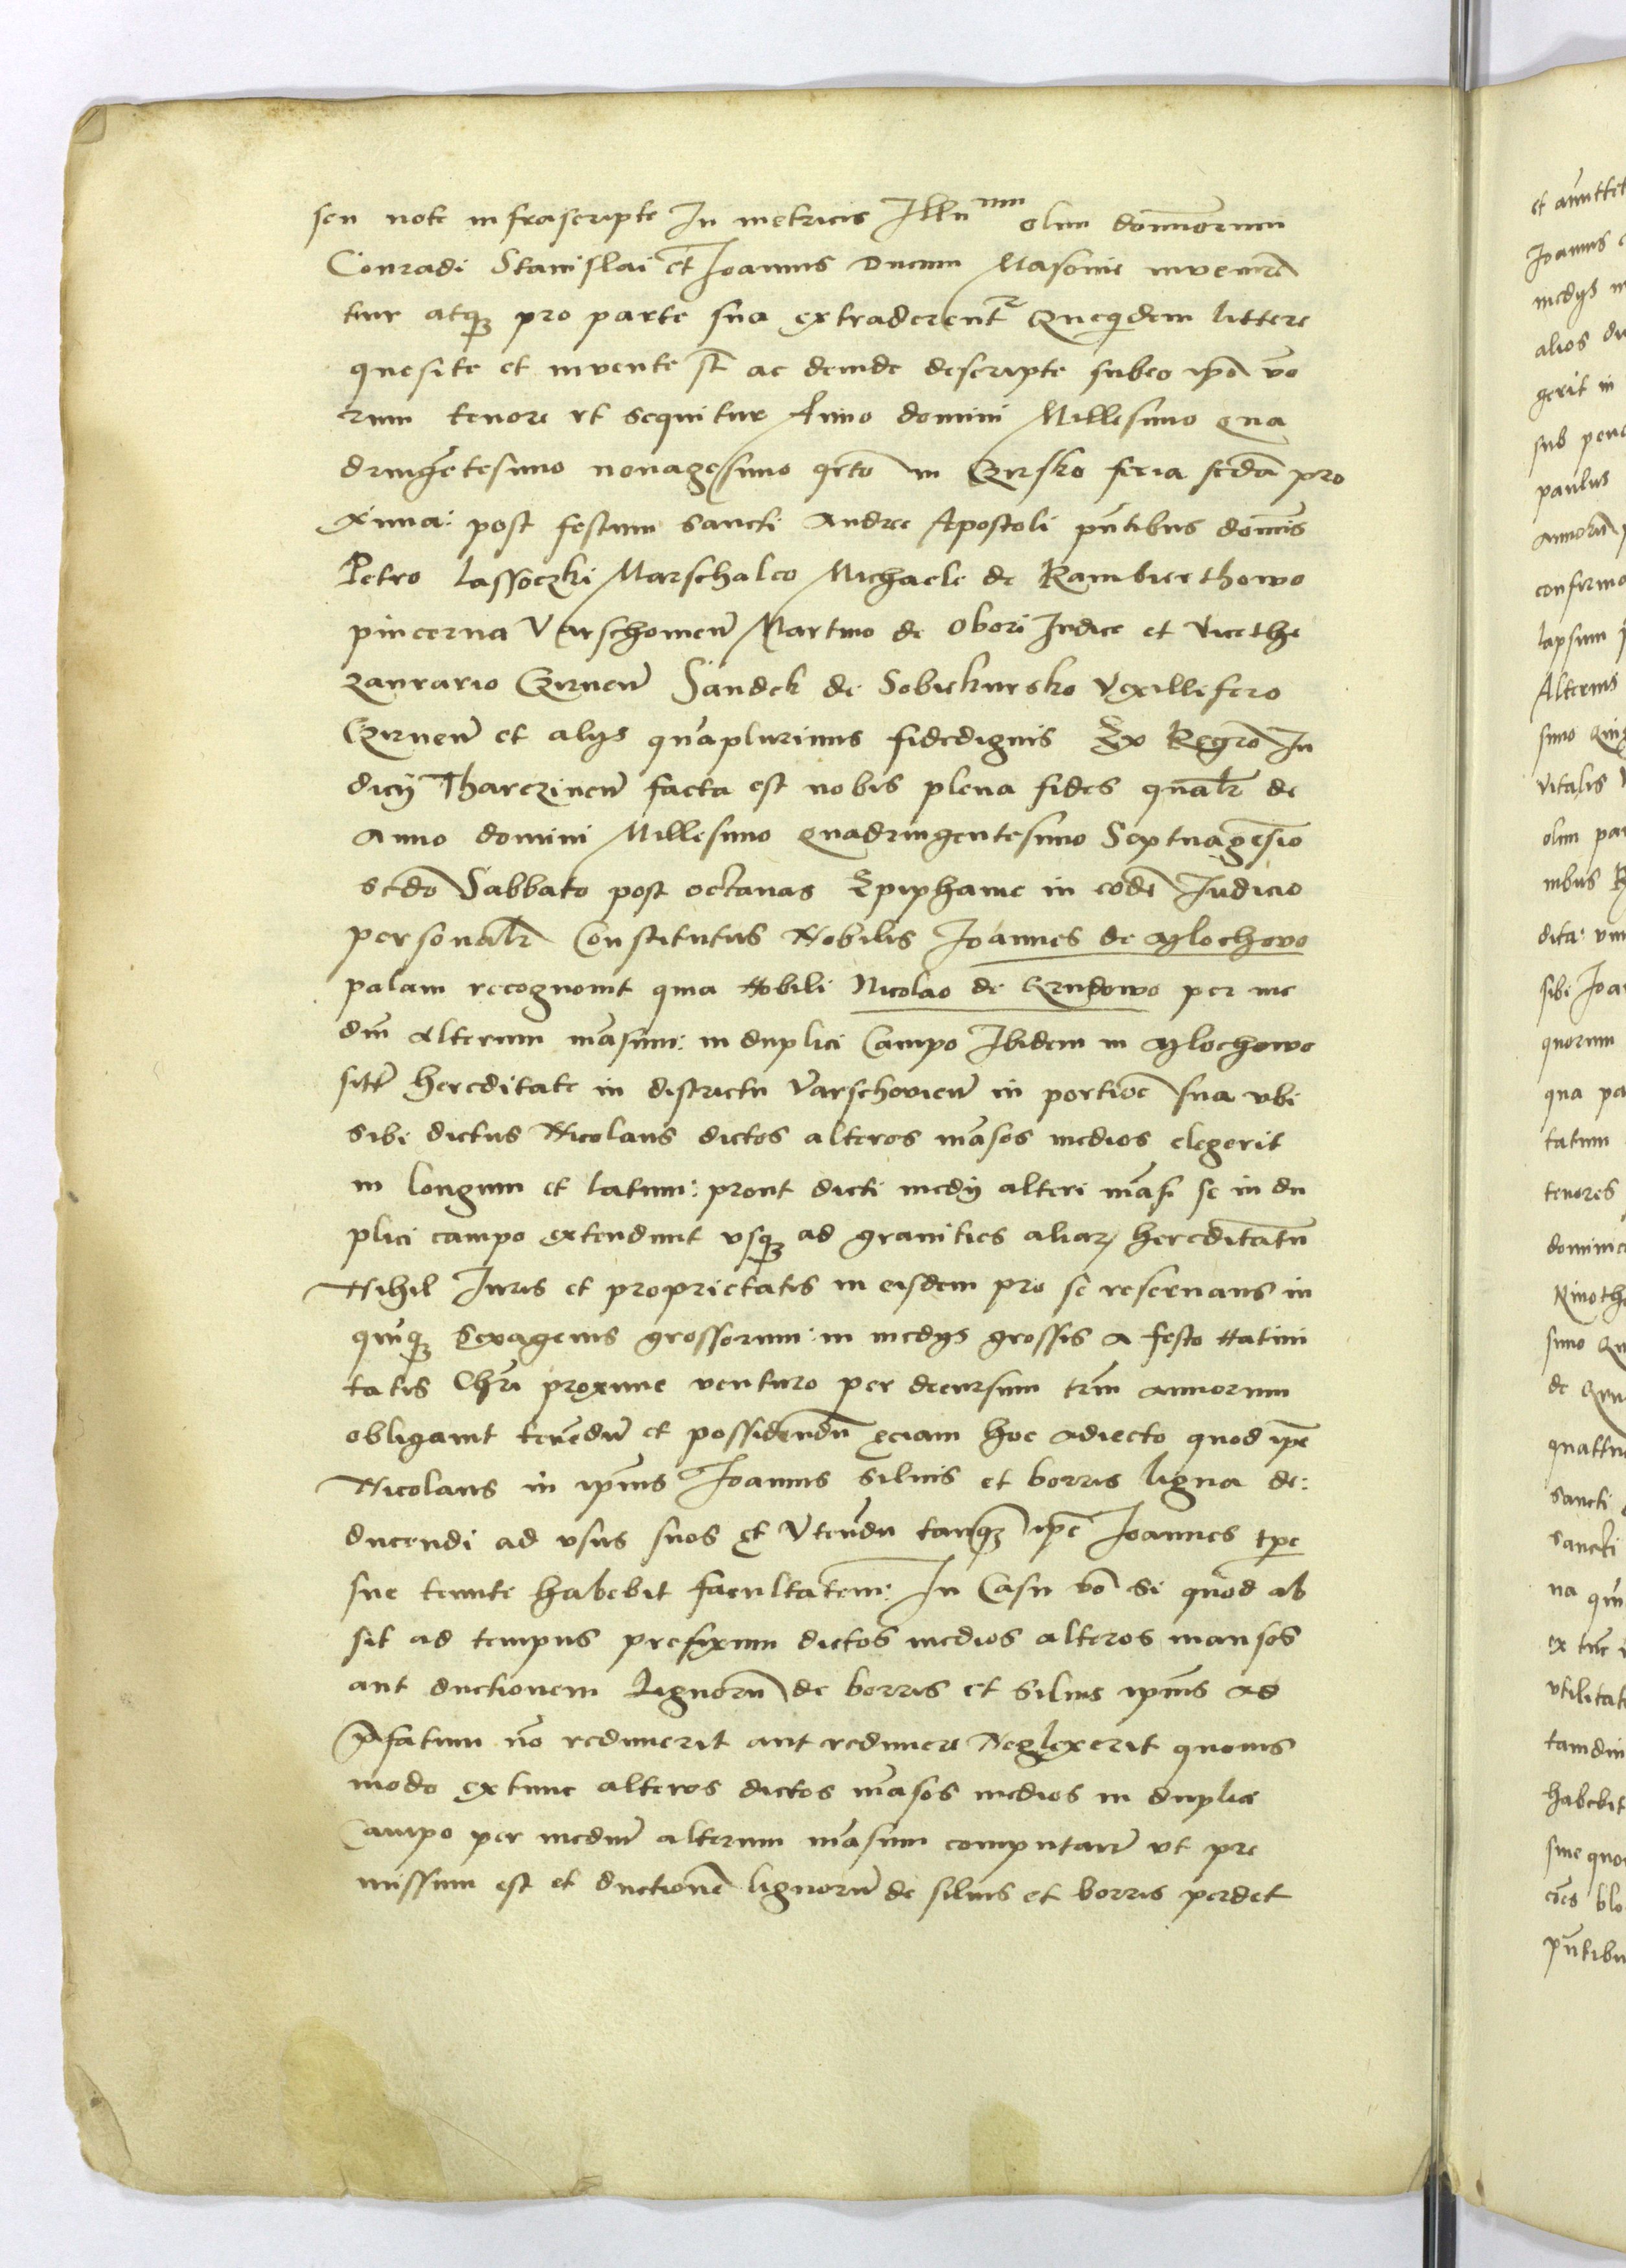 seu note infrascripte In metricis Illu^mm olim dominorum
Conradi Stanislai et Joannis Ducum Masovie invenire
tur atq3 pro parte sua extraderent^r Queqdem littere
quesite et invente st ac deinde descripte sub eo ipo vo
rum tenore ut sequitur Anno domini Millesimo qua
dringetesimo nonagesimo qrto in Czirsko feria scda pro
xima: post festum sancti Andree Apostoli pntibus domis
Petro Lassoczki Marschalco Michaele de Kambierthowo
pincerna Varschovien Martino de Obori Iudice et vicethe
zaurario Czirnen Sandek de Sobiekursko Vexillifero
Czirnen et alijs quaplurimis fidedignis Ex Regro Iu
dicij Tharczinen facta est nobis plena fides qualr de
Anno domini Millesimo quadringentesimo Septuagesio
scdo Sabbato post octavas Epiphanie in eode Iudicio
personalr Constitutus Nobilis Joannes de Glochovo
palam recognovit quia Nobili Nicolao de Grudowo per me
dm Alterum masum: in duplici Campo Ibidem in Glochowo
sitt hereditate in districtu Varschovien in portioe sua ubi
sibi dictus Nicolaus dictos alteros masos medios elegerit
in longum et latum: prout dicti medij alteri masi se in du
plici campo extendunt usq3 ad granities aliar hereditatu
Nihil Iuris et proprietatis in eisdem pro se reservans in
quinq3 Sexagenis grossorum: in medijs grossis a festo Nativi
tatis Chri proxime venturo per decursum trm annorum
obligavit tenedu et possidendu eciam hoc adiecto quod ipe
Nicolaus in ipius Joannis silvis et borris ligna de:
ducendi ad usus suos et Utendu tanq3 ipe Joannes tpe
sue tenute habebit facultatem: In Casu vo si quod ab
sit ad tempus prefixum dictos medios alteros mansos
aut ductionem Lignoru de borris et Silvis ipius ad
pfatum no redimerit aut redimere Neglexerit quovis
modo extunc alteros dictos masos medios in duplici
Campo per mediu alterum masum computare ut pre
missum est et ductione lignoru de silvis et borris perdet